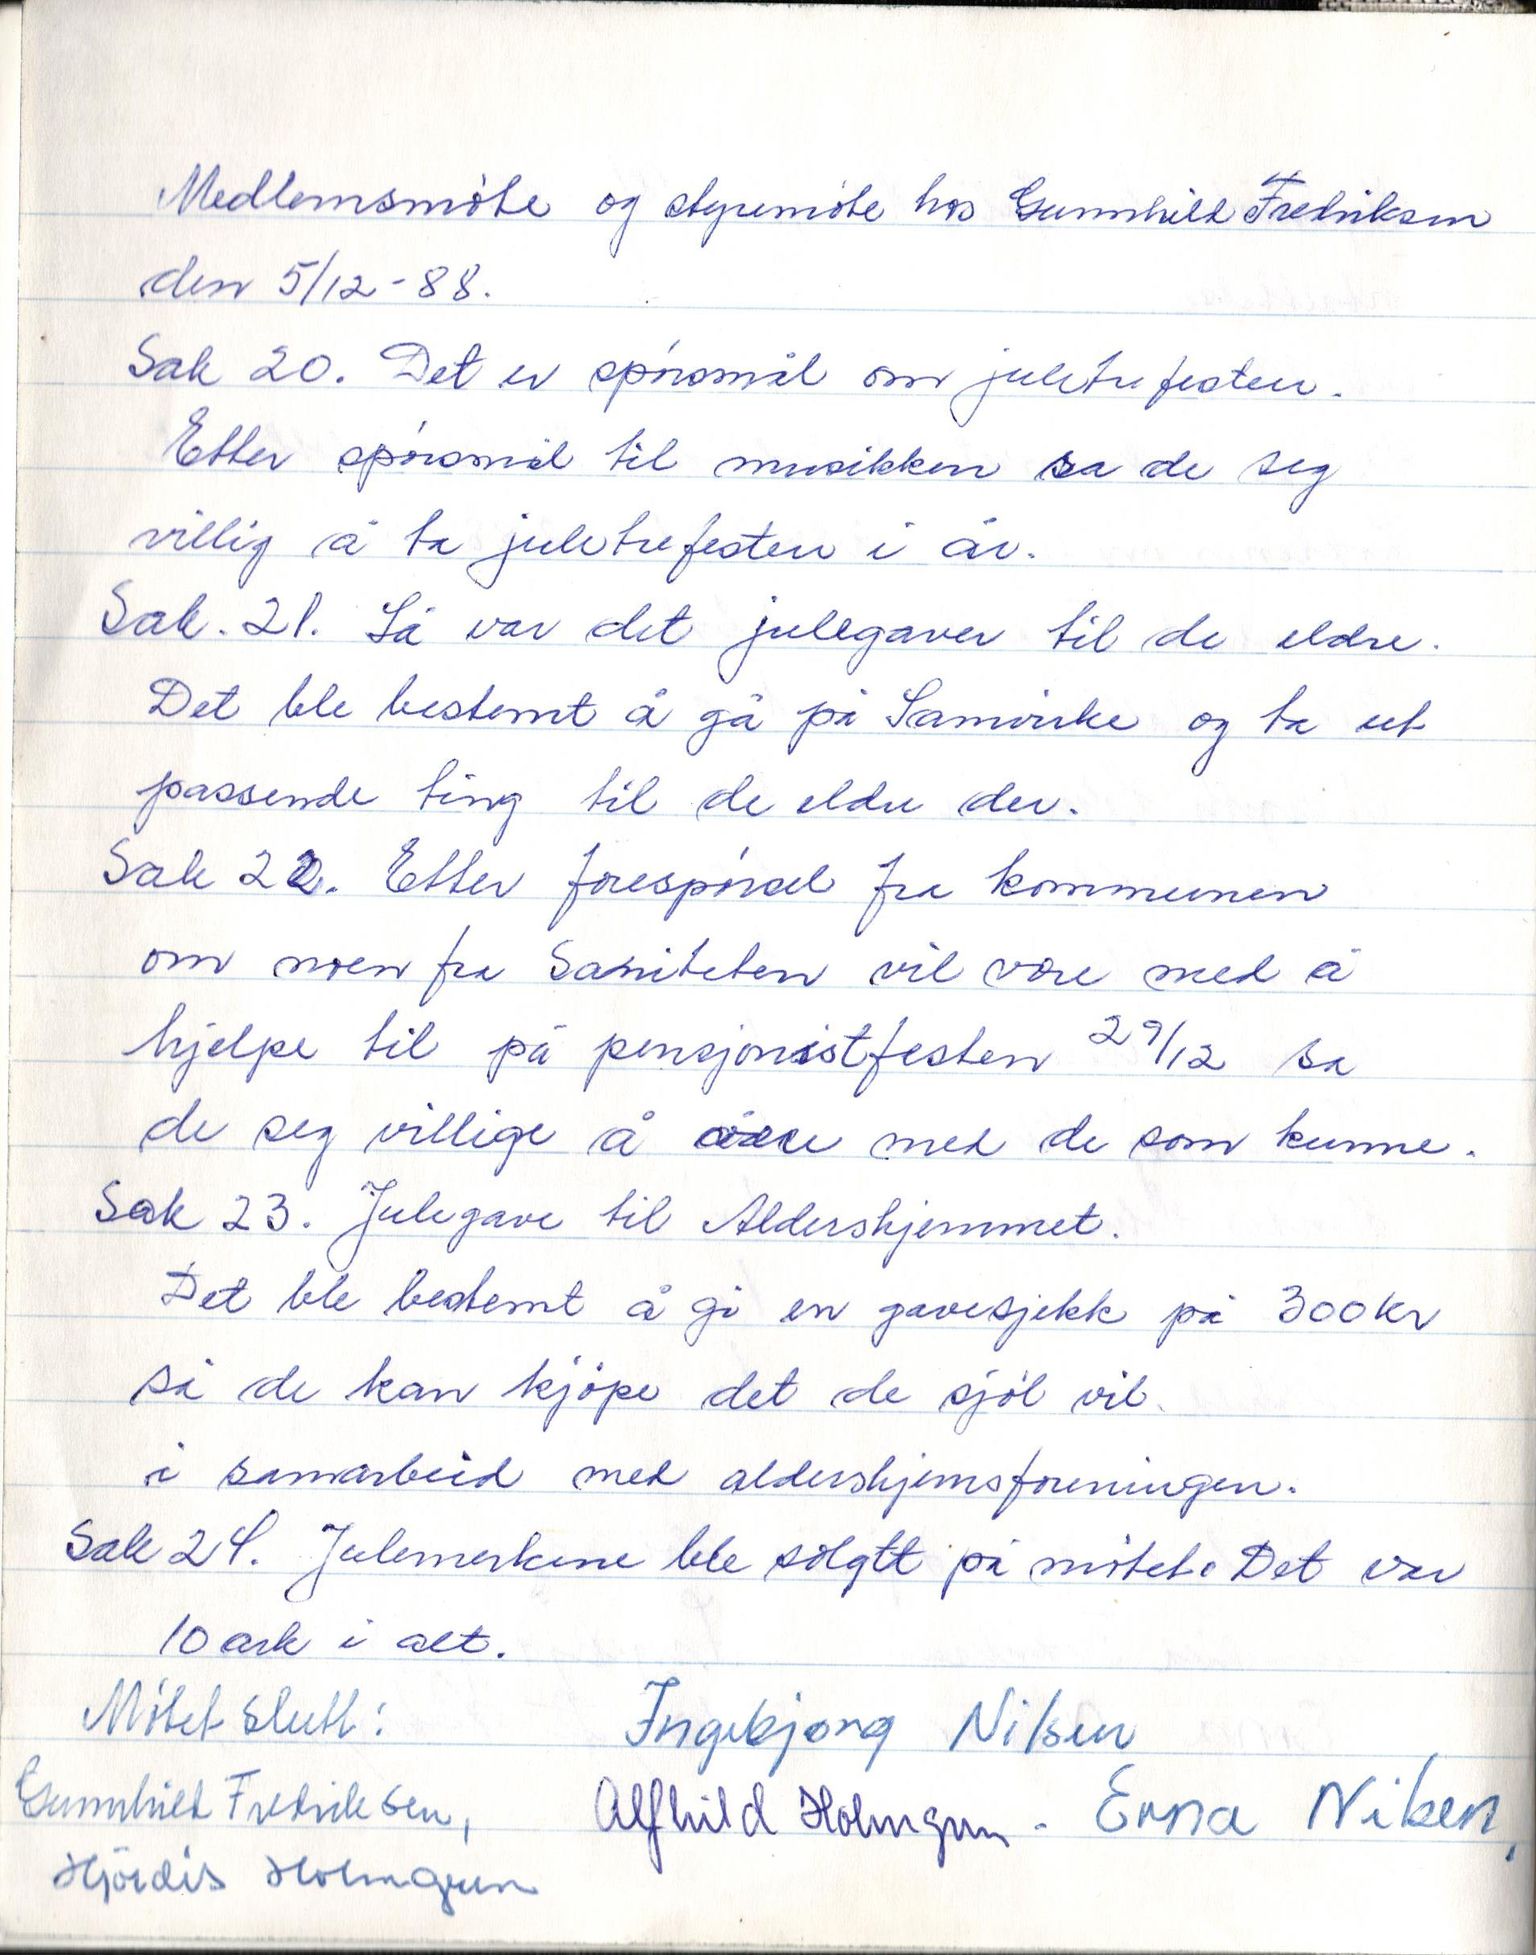 Medlemsmöte og styremöte hos Gunnhild Fredriksen
den 5/12-88.
Sak 20. Det er spörsmål om juletrefesten.
Etter spörsmål til musikken sa de seg
villig å ta juletrefesten i år.
Sak. 21. Så var det julegaver til de eldre.
Det ble bestemt å gå på Samvirke og ta ut
passende ting til de eldre der.
Sak 22. Etter forespörsel fra kommunen
om noen fra Saniteten vil være med å
hjelpe til på pensjonistfesten 29/12 sa
de seg villige å være med de som kunne.
Sak 23. Julegave til Aldershjemmet.
Det ble bestemt å gi en gavesjekk på 300kr
så de kan kjöpe det de sjöl vil.
i samarbeid med aldershjemsforeningen.
Sak 24. Julemerkene ble solgtt på mötet. Det var
10 ark i alt.
Mötet slutt: Ingebjorg Nilsen
Gunnhild Fredriksen, Alfhild Holmgren. Erna Nilsen,
Hjördis Holmgren